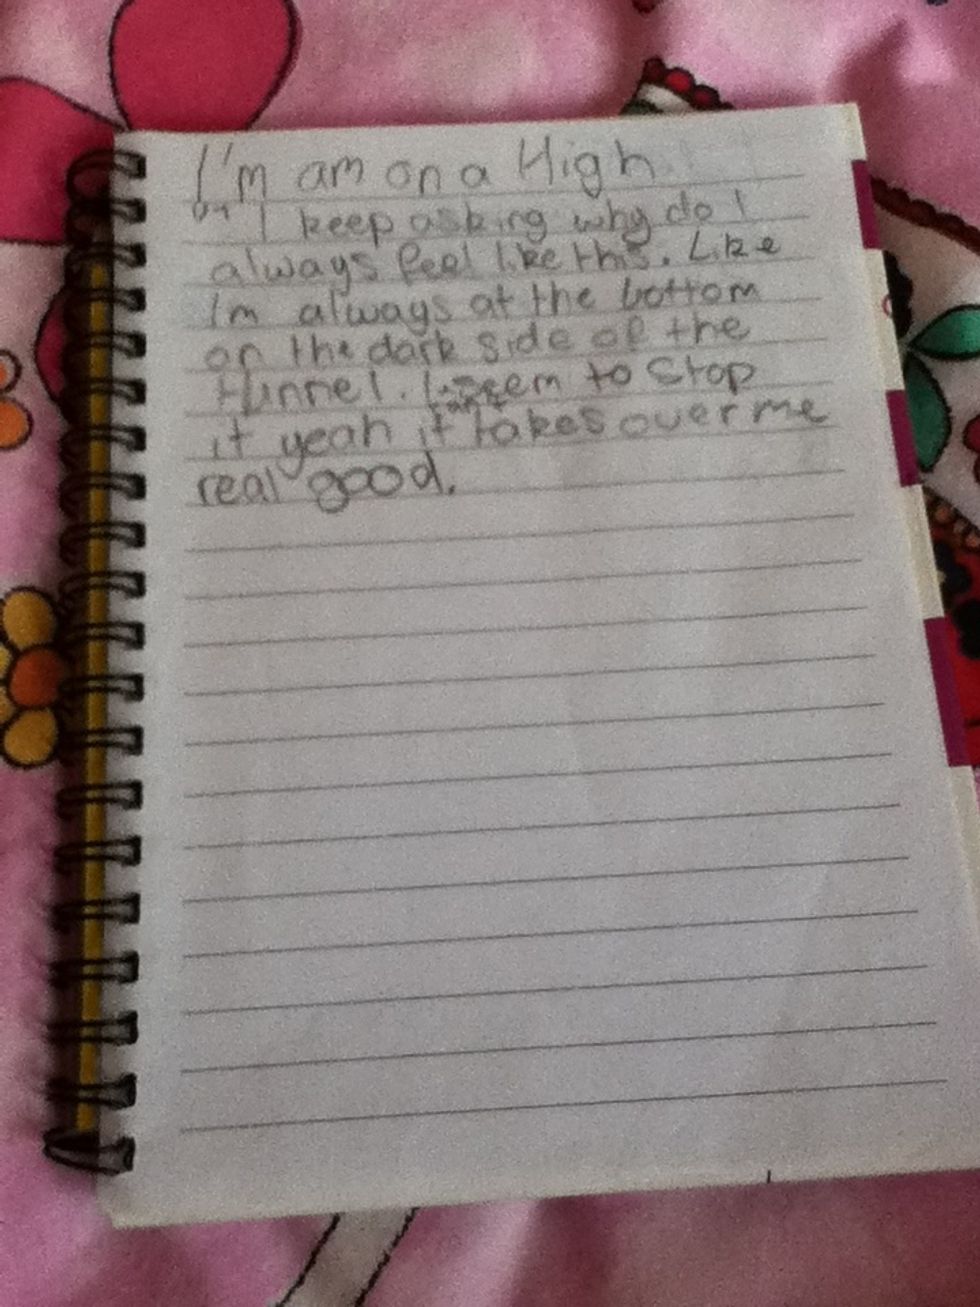 I'm am on a High
I keep asking why do I
always feel like this. Like
I'm always at the bottom
on the dark side of the
tunnel. I seem to stop
it yeah it takes over me
real good.